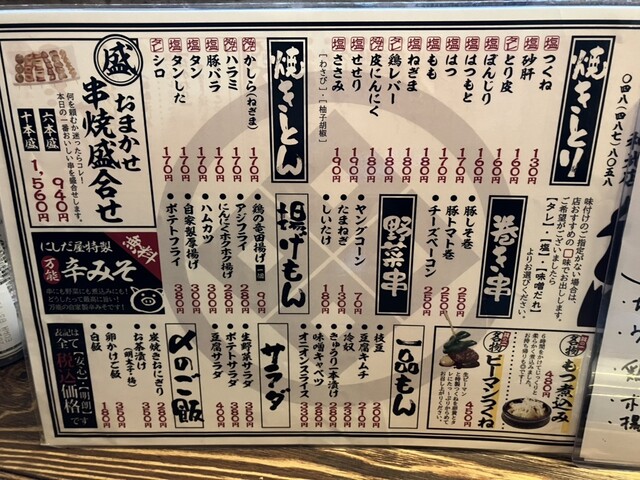 〇四八(四八七)八〇五八
焼きとり
塩 つくね 130円
塩 砂肝 160円
とり皮 160円
ぼんじり 160円
はつもと 160円
はつ 170円
もも 180円
ねぎま 180円
鶏レバー 180円
皮にんにく 180円
せせり 190円
ささみ 190円
[わさび]・[柚子胡椒]
焼きとん
かしら(ねぎま) 170円
ハラミ 170円
豚バラ 170円
タン 170円
タンした 170円
シロ 170円
盛
おまかせ
串焼盛合せ
何を頼むか迷ったらコレ!
本日の一番おいしい串を盛合せします。
六本盛 940円
十本盛 1,560円
味付けのご指定がない場合は、
店おすすめの□味でお出しします。
ご希望がございましたら
【タレ】・【塩】・【味噌だれ】
よりお選びください。
巻き串
豚しそ巻 250円
豚トマト巻 250円
チーズベーコン 250円
野菜串
ヤングコーン 70円
たまねぎ 130円
しいたけ 180円
揚げもん
鶏の竜田揚げ 一個 90円
アジフライ 280円
にんにくホクホク揚げ 300円
ハムカツ 330円
自家製厚揚げ 380円
ポテトフライ 380円
にしだ屋特製
無料
万能 辛みそ
串にも野菜にも煮込みにも!
どうしたって最高に旨い!
名物
もつ煮込み
480円
名物
ピーマンつくね
450円
一品もん
枝豆 300円
豆腐キムチ
冷奴
きゅうり一本漬け
味噌キャベツ
オニオンスライス
サラダ
生野菜サラダ 350円
ポテトサラダ 380円
豆腐サラダ 400円
〆のご飯
炭焼きおにぎり 280円
お茶漬け 350円
(明太子・梅)
卵かけご飯 350円
白飯 180円
表記は全て
【安心】【明朗】
税込価格
です